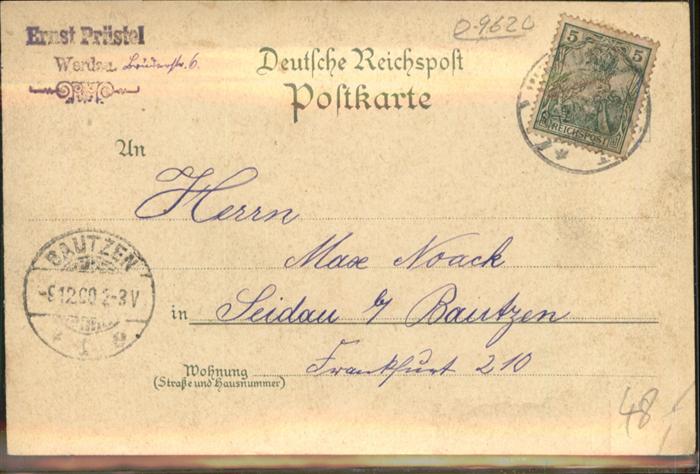 D-9620
Ernst Prüstel
Werdau Brüderstr. 6.
Deutsche Reichspost
Postkarte
5 5
REICHSPOST
An
Herrn
Max Noack
in Seidau b/ Bautzen
Frankfurt 210
Wohnung
(Straße und Hausnummer)
BAUTZEN
-9.12.00 2-3V
1 e
48